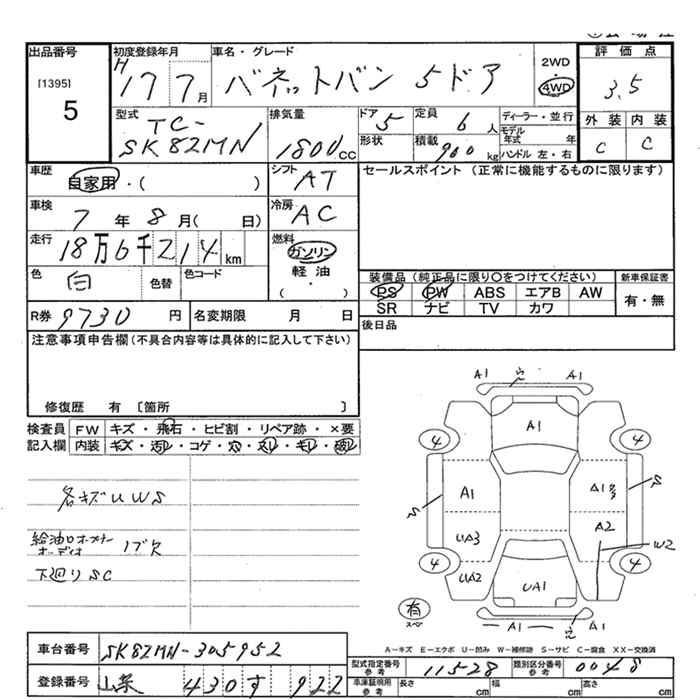 出品番号
[1395]
5
初度登録年月
H17 7月
車名・グレード
バネットバン 5ドア
2WD
4WD
評価点
3.5
外装 内装
C C
型式
TC-
SK82MN
排気量
1800cc
ドア 5
形状
定員 6人
積載 900kg
ディーラー・並行
モデル年式 年
ハンドル 左・右
車歴
自家用・( )
シフト AT
車検
7年 8月( 日)
冷房 AC
走行
18万6千214km
燃料
ガソリン
軽油
( ・ )
色 白 色替 色コード
R券 9730円 名変期限 月 日
セールスポイント (正常に機能するものに限ります)
装備品 (純正品に限り○をつけてください)
PS PW ABS エアB AW
SR ナビ TV カワ
新車保証書
有・無
後日品
注意事項申告欄(不具合内容等は具体的に記入して下さい)
修復歴 有 [箇所 ]
検査員 FW キズ・飛石・ヒビ割・リペア跡・×要
記入欄 内装 キズ・汚れ・コゲ・穴・スレ・キレ・
各キズUWS
給油口オープナー
オーディオ ノブ欠
下廻りSC
A1 A1
A1
4 4
A1 A1
A2
UA3
W2
UA2
4 4
UA1
有
スペ
A1 A1
A-キズ E-エクボ U-凹み W-補修跡 S-サビ C-腐食 XX-交換済
車台番号 SK82MN-305952
登録番号 430す 922
型式指定番号 参考 11528 類別区分番号 参考 0048
車庫証明用 参考 長さ cm 幅 cm 高さ cm